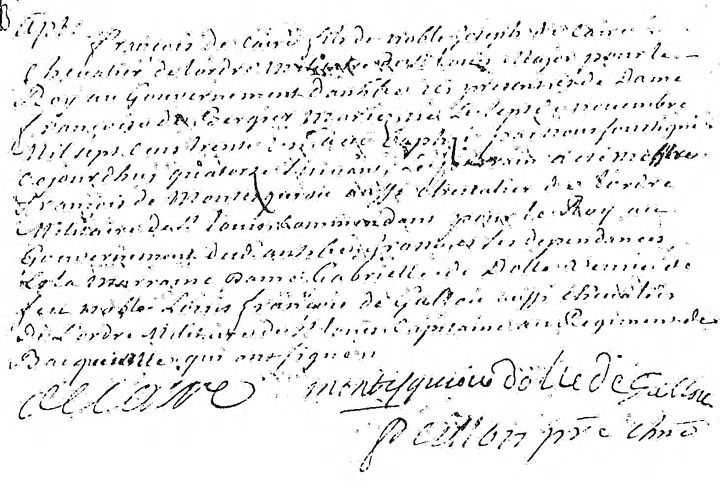 Bapt.
François de Caire fils de noble Joseph de Caire
Chevalier de l'ordre Militaire de St Louis Major pour le
Roy au Gouvernement d'antibes ici present et de Dame
françoise de Bergier Mariés né le sept novembre
Mil sept Cens trente cinq a été Baptisé par nous soussigné
cejourdhuy quatorse suivant, Le parrain a été Messire
françois de Montesquiou aussi chevalier de l'ordre
Militaire de St louis Commendant pour le Roy au
Gouvernement dud. antibes les dependances
Et la Marraine Dame Gabrielle de Dolle Veuve de
feu noble Louis françois de Gallou aussi chevalier
de L'ordre Militaire de St louis Capitaine au Regiment de
qui ont signé
de Caire Montesquiou dolle de Gallou
pre